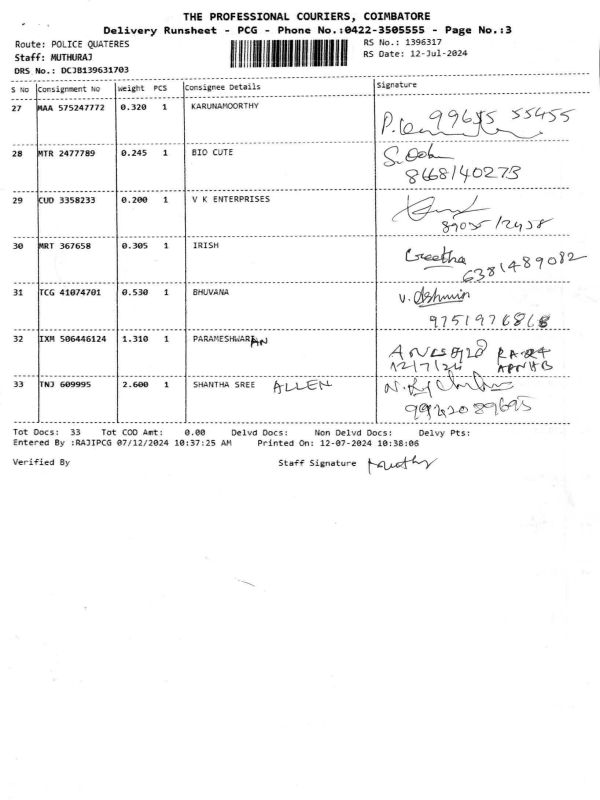 THE PROFESSIONAL COURIERS, COIMBATORE
Delivery Runsheet - PCG - Phone No.:0422-3505555 - Page No.:3
Route: POLICE QUATERES
RS No.: 1396317
Staff: MUTHURAJ
RS Date: 12-Jul-2024
DRS No.: DCJB139631703
S No Consignment No Weight PCS Consignee Details Signature
27 MAA 575247772 0.320 1 KARUNAMOORTHY
28 MTR 2477789 0.245 1 BIO CUTE
8668140273
29 CUD 3358233 0.200 1 V K ENTERPRISES
30 MRT 367658 0.305 1 IRISH Geetha
6381489082
31 TCG 41074701 0.530 1 BHUVANA V. Ashwin
32 IXM 506446124 1.310 1 PARAMESHWARAN
12/7/24
33 TNJ 609995 2.600 1 SHANTHA SREE ALLEN
Tot Docs: 33 Tot COD Amt: 0.00 Delvd Docs: Non Delvd Docs: Delvy Pts:
Entered By :RAJIPCG 07/12/2024 10:37:25 AM Printed On: 12-07-2024 10:38:06
Verified By Staff Signature